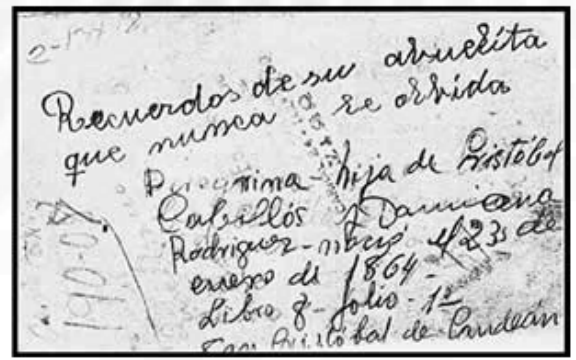 Recuerdos de su abuelita
que nunca se olvida
Peregrina - hija de Cristóbal
Caballós y Damiana
Rodriguez - nació el 23 de
enero de 1864 -
Libro 8 - folio - 1º
San Cristóbal de Candeán
190-0